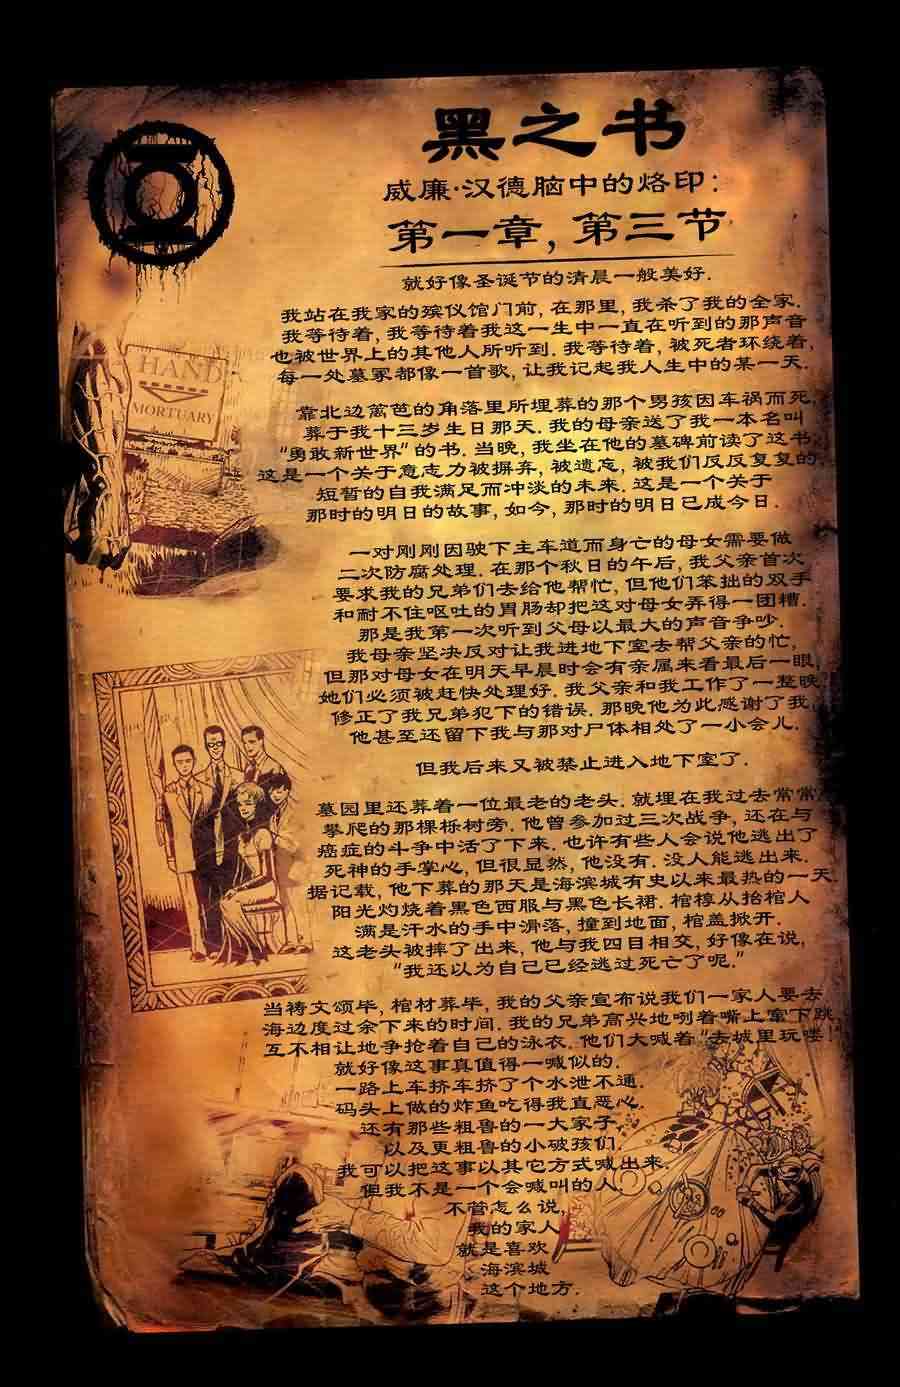 黑之书
威廉·汉德脑中的烙印:
第一章, 第三节
就好像圣诞节的清晨一般美好.
我站在我家的殡仪馆门前, 在那里, 我杀了我的全家.
我等待着, 我等待着我这一生中一直在听到的那声音
也被世界上的其他人所听到. 我等待着, 被死者环绕着,
每一处墓冢都像一首歌, 让我记起我人生中的某一天.
HAND
MORTUARY
靠北边篱笆的角落里所埋葬的那个男孩因车祸而死,
葬于我十三岁生日那天. 我的母亲送了我一本名叫
“勇敢新世界”的书. 当晚, 我坐在他的墓碑前读了这书,
这是一个关于意志力被摒弃, 被遗忘, 被我们反反复复的,
短暂的自我满足而冲淡的未来. 这是一个关于
那时的明日的故事, 如今, 那时的明日已成今日.
一对刚刚因驶下主车道而身亡的母女需要做
二次防腐处理. 在那个秋日的午后, 我父亲首次
要求我的兄弟们去给他帮忙, 但他们笨拙的双手
和耐不住呕吐的胃肠却把这对母女弄得一团糟.
那是我第一次听到父母以最大的声音争吵.
我母亲坚决反对让我进地下室去帮父亲的忙,
但那对母女在明天早晨时会有亲属来看最后一眼,
她们必须被赶快处理好. 我父亲和我工作了一整晚,
修正了我兄弟犯下的错误. 那晚他为此感谢了我,
他甚至还留下我与那对尸体相处了一小会儿.
但我后来又被禁止进入地下室了.
墓园里还葬着一位最老的老头. 就埋在我过去常常
攀爬的那棵栎树旁. 他曾参加过三次战争, 还在与
癌症的斗争中活了下来. 也许有些人会说他逃出了
死神的手掌心, 但很显然, 他没有. 没人能逃出来.
据记载, 他下葬的那天是海滨城有史以来最热的一天.
阳光灼烧着黑色西服与黑色长裙. 棺椁从抬棺人
满是汗水的手中滑落, 撞到地面, 棺盖掀开.
这老头被摔了出来, 他与我四目相交, 好像在说,
“我还以为自己已经逃过死亡了呢.”
当祷文颂毕, 棺材葬毕, 我的父亲宣布说我们一家人要去
海边度过余下来的时间. 我的兄弟高兴地咧着嘴上窜下跳,
互不相让地争抢着自己的泳衣. 他们大喊着“去城里玩喽!”
就好像这事真值得一喊似的.
一路上车挤车挤了个水泄不通.
码头上做的炸鱼吃得我直恶心.
还有那些粗鲁的一大家子,
以及更粗鲁的小破孩们.
我可以把这事以其它方式喊出来.
但我不是一个会喊叫的人.
不管怎么说,
我的家人
就是喜欢
海滨城
这个地方.